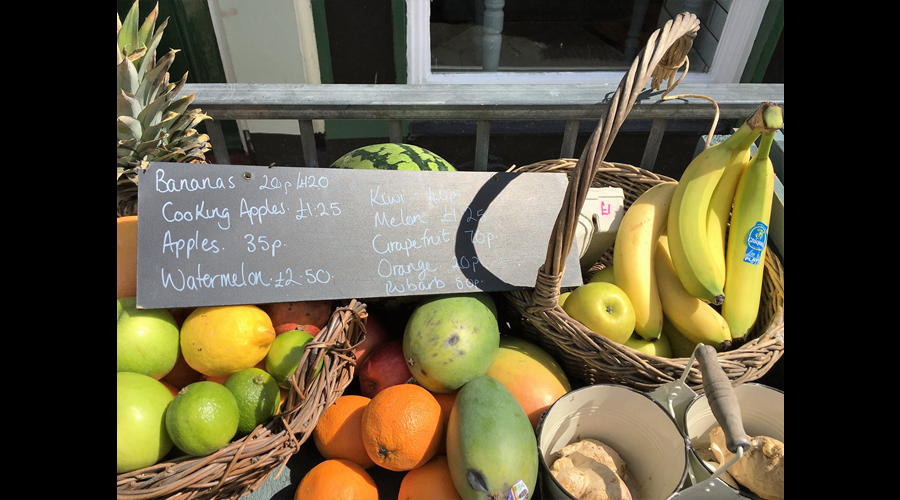 Bananas 20p
Cooking Apples. £1.25
Apples. 35p.
Watermelon. £2.50.
Kiwi
Melon £1.25
Grapefruit 70p.
Orange 20p
Rubarb
£1